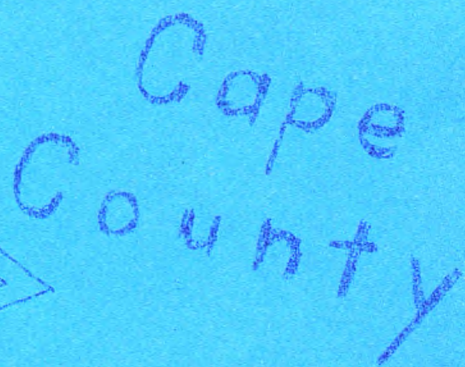 Cape
County